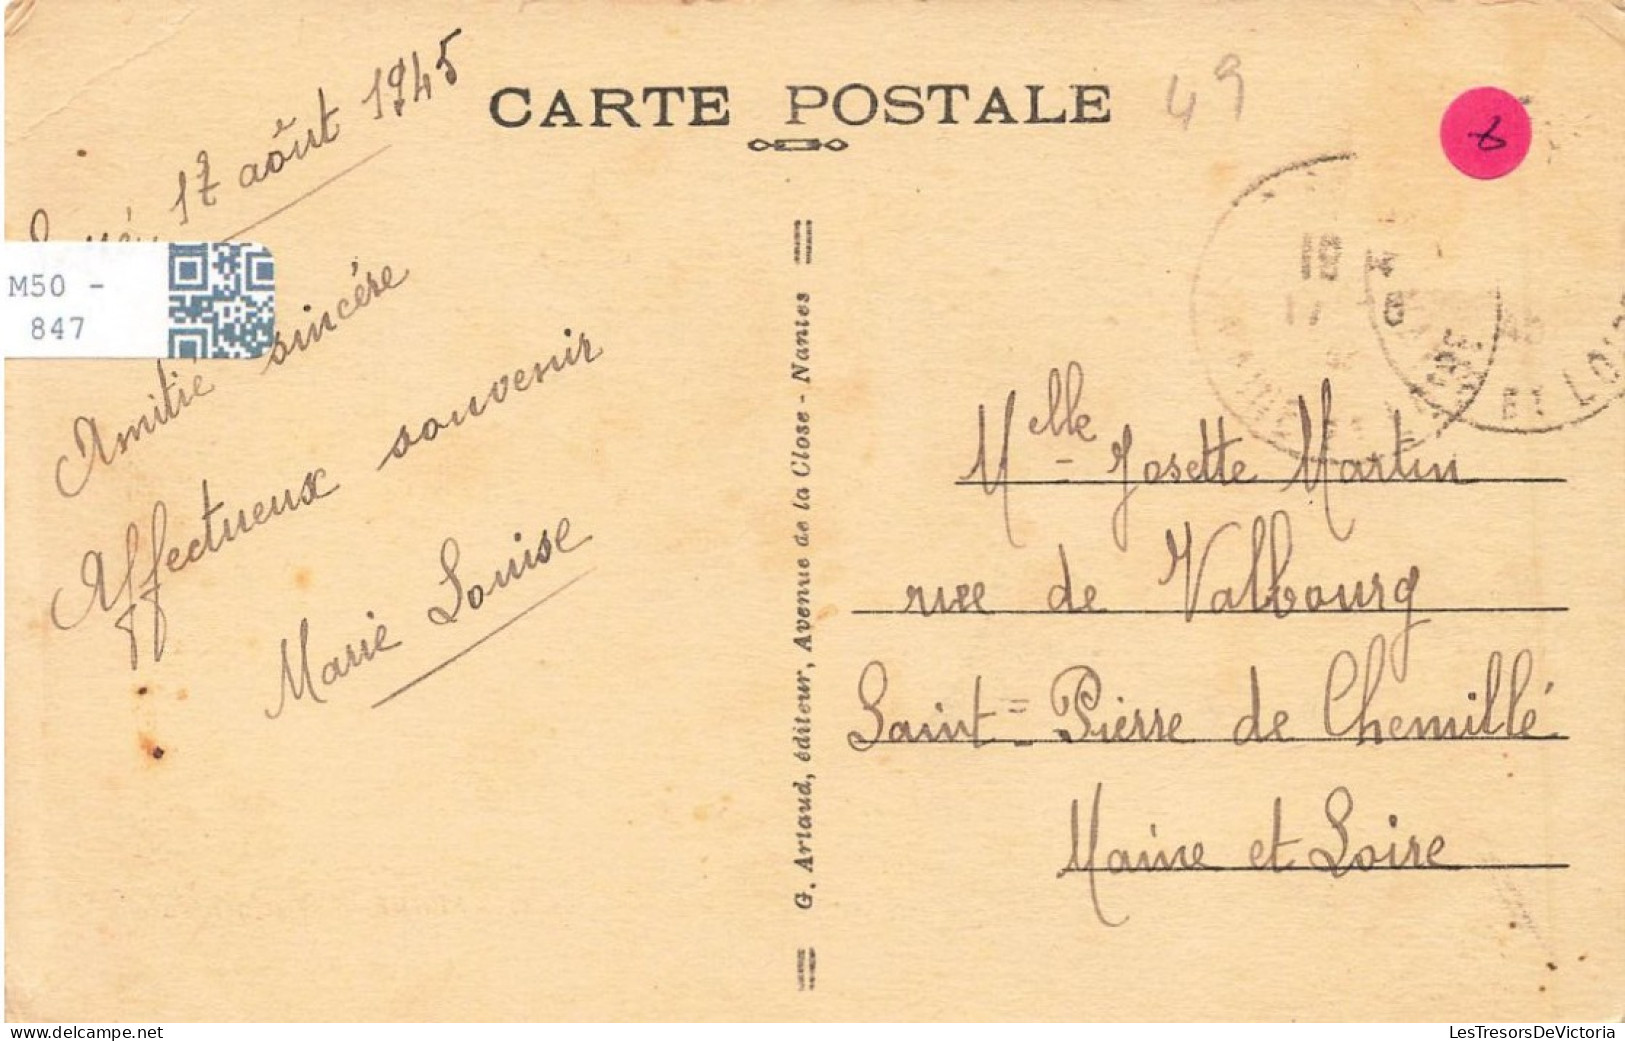 CARTE POSTALE
49
17 août 1945
M50 -
847
Amitié sincère
Affectueux souvenir
Marie Louise
G. Artaud, éditeur, Avenue de la Close - Nantes
Melle Josette Martin
rue de Valbourg
Saint-Pierre de Chemillé
Maine et Loire
LesTresorsDeVictoria